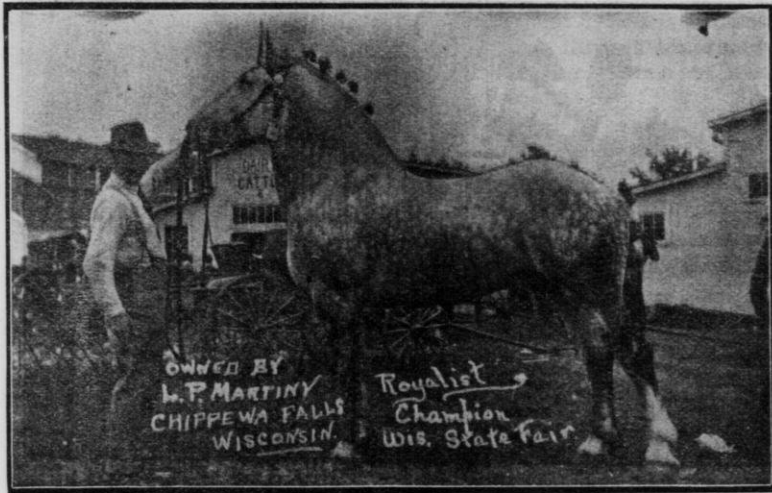 DAIRY
CATTLE
OWNED BY
L.P. MARTINY
CHIPPEWA FALLS
WISCONSIN.
Royalist
Champion
Wis. State Fair